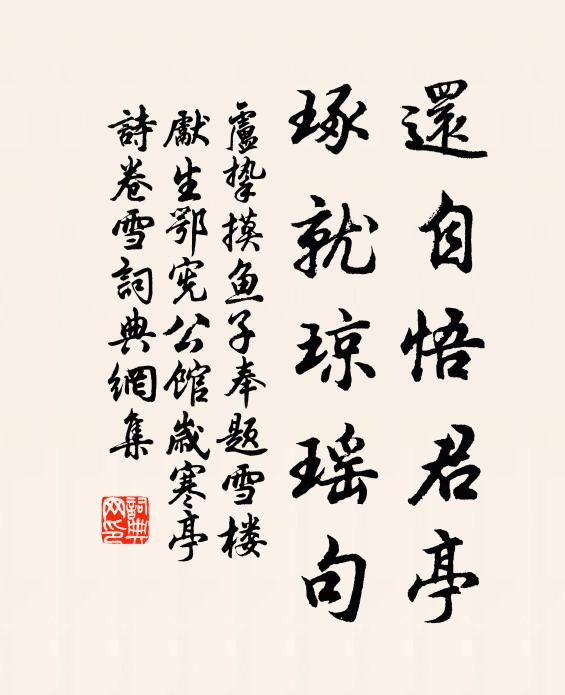 還自悟君亭
琢就琼瑶句
盧挚摸鱼子奉题雪楼
獻生鄂宪公館歲寒亭
詩卷雪詞典網集
詞典网印